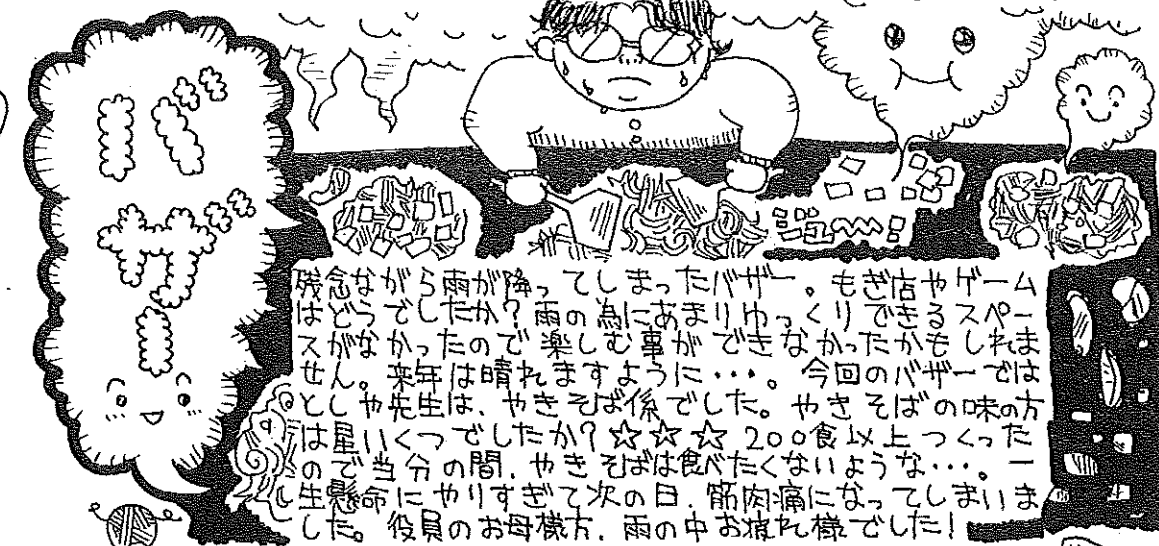 バザー
残念ながら雨が降ってしまったバザー。もぎ店やゲーム
はどうでしたか?雨の為にあまりゆっくりできるスペー
スがなかったので楽しむ事ができなかったかもしれま
せん。来年は晴れますように・・・。今回のバザーでは
としや先生は、やきそば係でした。やきそばの味の方
は星いくつでしたか?☆☆☆200食以上つくった
ので当分の間、やきそばは食べたくないような・・・。一
生懸命にやりすぎて次の日、筋肉痛になってしまいま
した。役員のお母様方、雨の中お疲れ様でした!